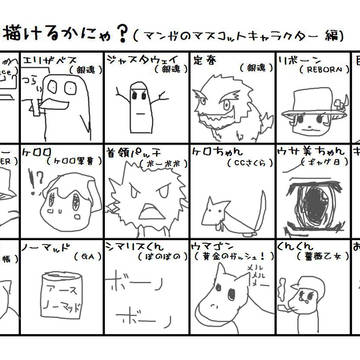 描けるかにゃ？(マンガのマスコットキャラクター 編)
エリザベス
(銀魂)
ジャスタウェイ
(銀魂)
定春
(銀魂)
リボーン
(REBORN)
つらい
ケロロ
(ケロロ軍曹)
首領パッチ
(ボーボボ)
ケロちゃん
(CCさくら)
ウサ美ちゃん
(ギャグ日)
!?
ノーマッド
(GA)
シマリスくん
(ぼのぼの)
ウマゴン
(黄金のガッシュ!)
くんくん
(薔薇乙女)
アース
ノーマッド
ボーノ
ボーノ
メル
メルメル
メー